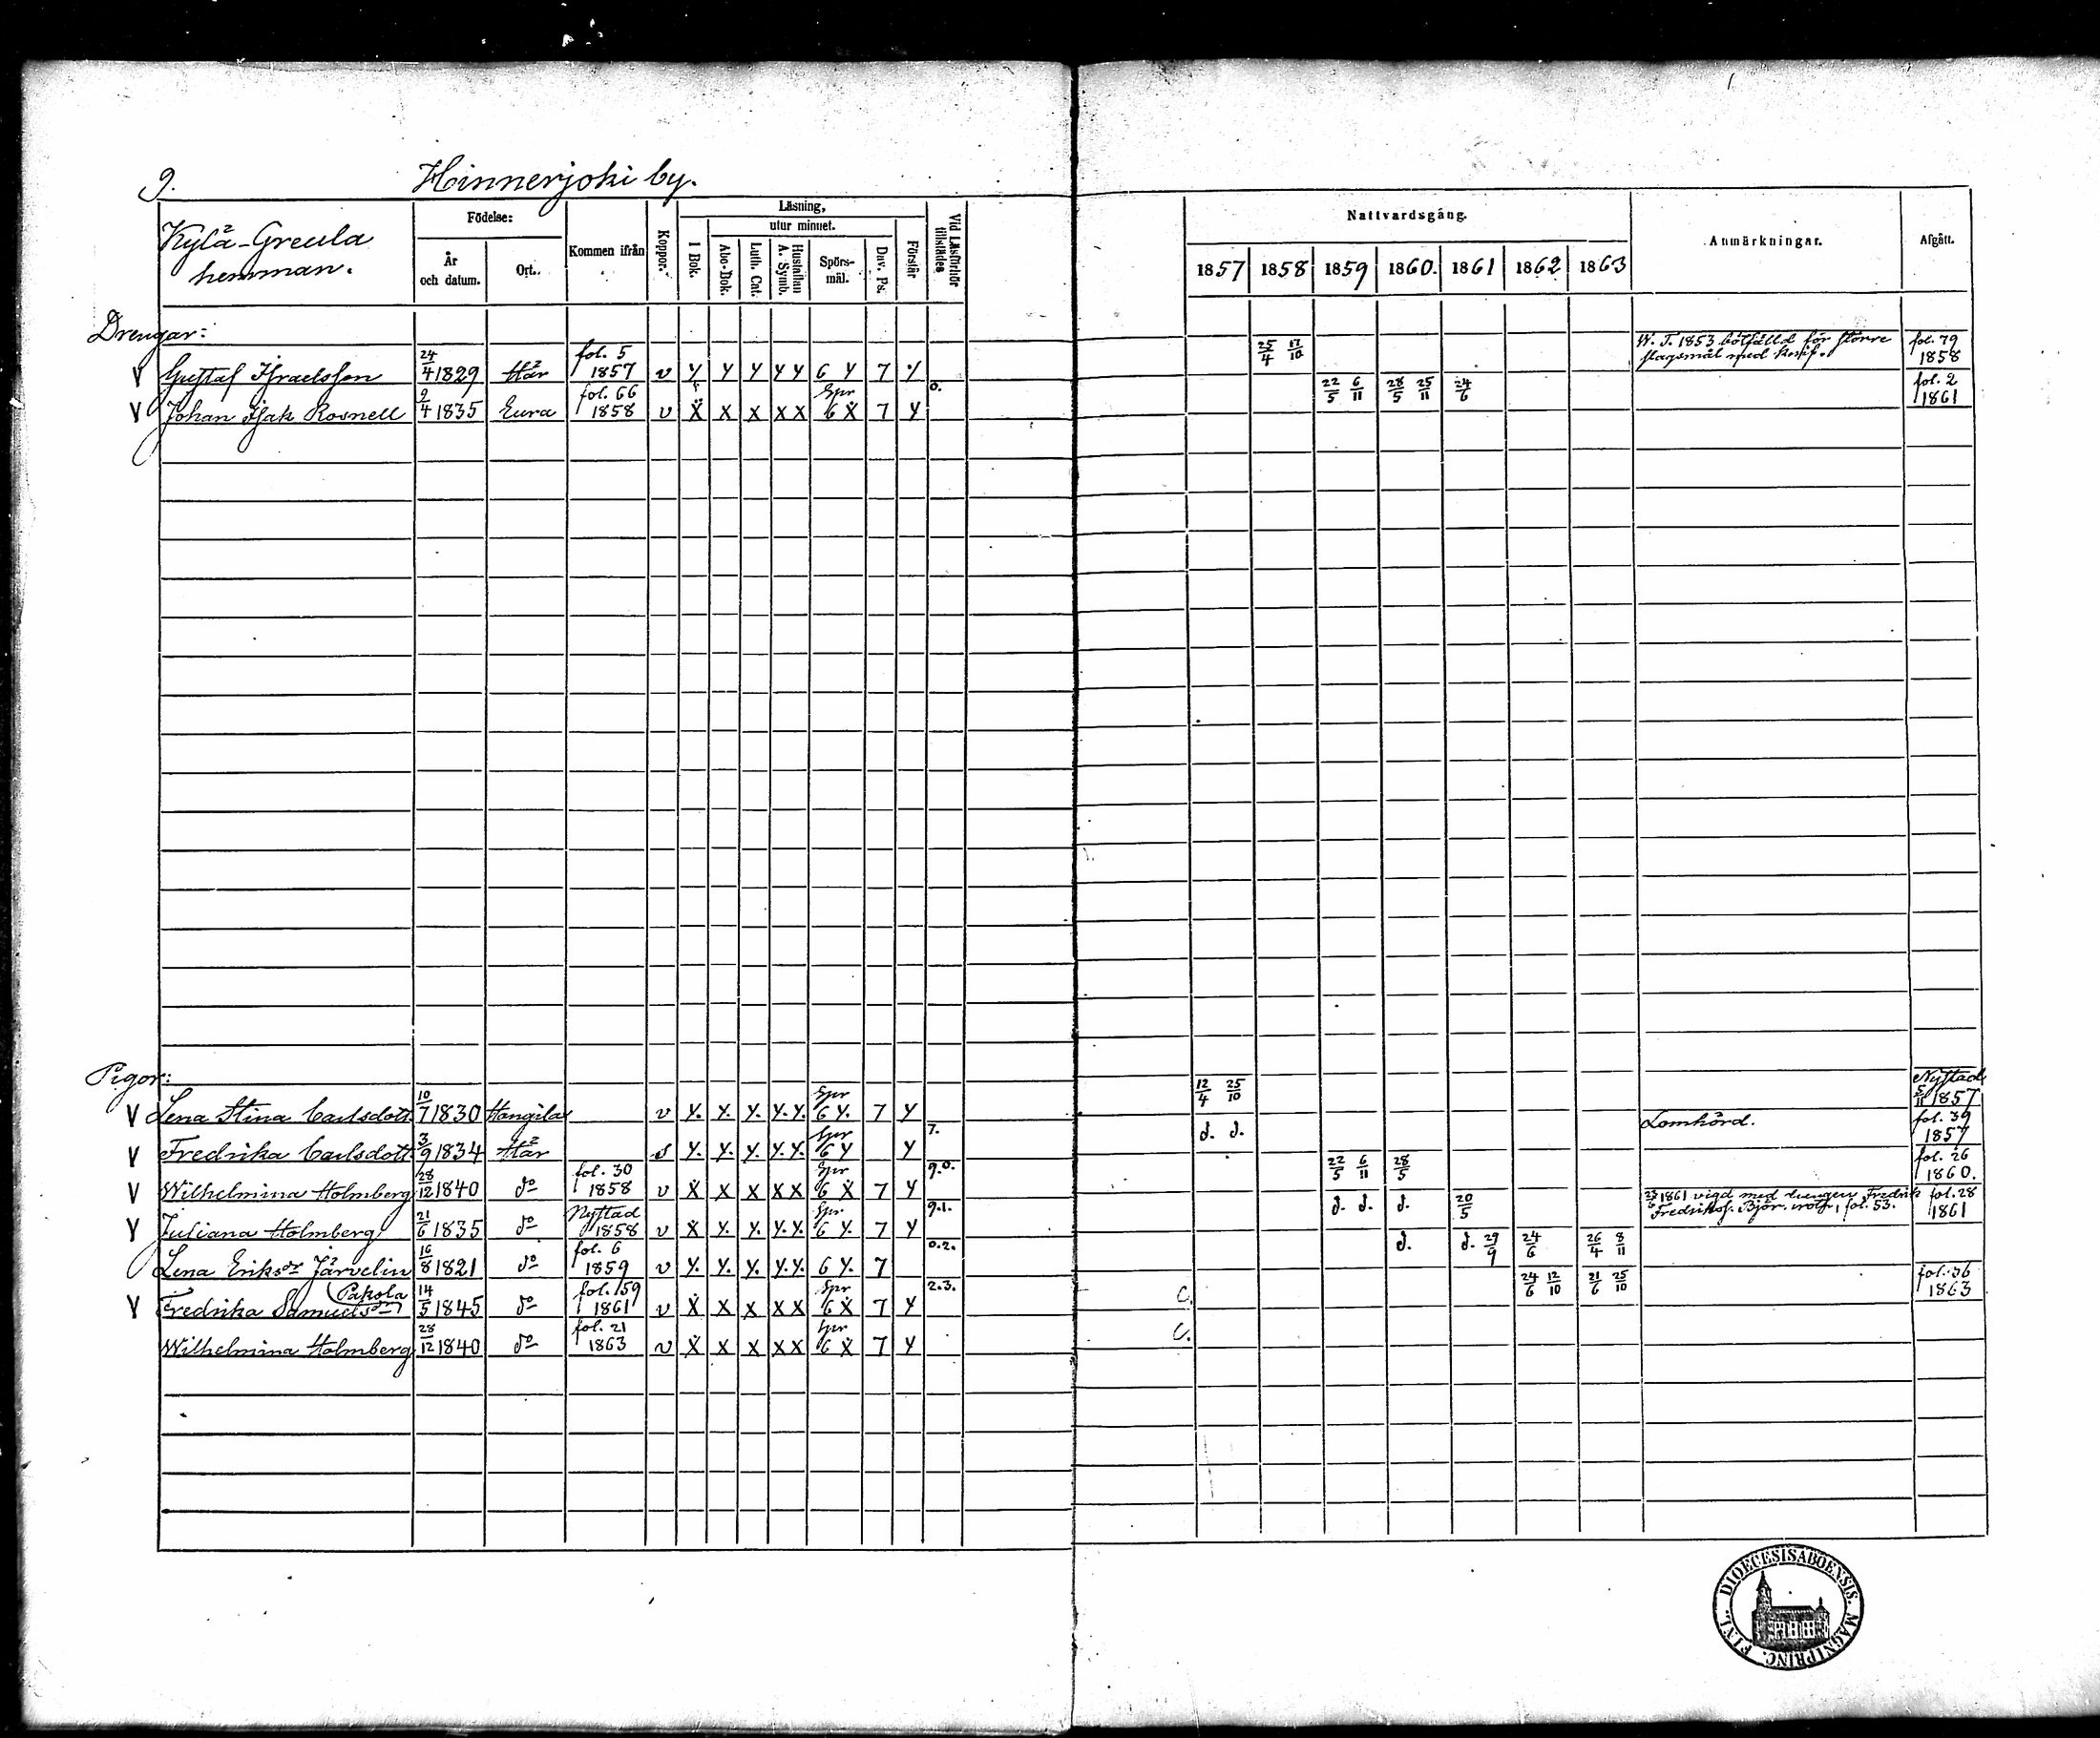 9. Hinnerjoki by.
Kylä-Greula hemman.
Födelse: År och datum. Ort. Kommen ifrån Koppor. Läsning, I Bok. utur minnet. Abc-Bok. Luth. Cat. Hustaflan A. Symb. Spörs-mål. Dav. Ps. Förstår Vid Läsförhör tillstädes
Nattvardsgång. 1857 1858 1859 1860. 1861 1862 1863 Anmärkningar. Afgått.
Drengar:
V Gustaf Israelsson 24/4 1829 Här fol. 5 1857 v y y y y y 6 y 7 y 25/4 17/10 W. T. 1853 bötfälld för större slagsmål med knif. fol. 79 1858
V Johan Isak Rosnell 2/4 1835 Eura fol. 66 1858 v X X X X X Spr 6 X 7 y 0. 22/5 6/11 28/5 25/11 24/6 fol. 2 1861
Pigor:
V Lena Stina Carlsdott. 10/7 1830 v y. y. y. y. y. Spr 6 y. 7 y 12/4 25/10 Nystad 5/11 1857
V Fredrika Carlsdott. 3/9 1834 Här y. y. y. y. y. Spr 6 y y 7. d. d. Lomhörd. fol. 39 1857
V Wilhelmina Holmberg 28/12 1840 do fol. 30 1858 v X X X X X Spr 6 X 7 y 9.0. 22/5 6/11 28/5 fol. 26 1860.
Y Juliana Holmberg 21/6 1835 do Nystad 1858 v X y. y. y. y. Spr 6 y. 7 y 9.1. d. d. d. 20/5 1861 vigd med drengen Fredrik Fredrikss. fol. 53. fol. 28 1861
Lena Eriksdr Järvelin 16/8 1821 do fol. 6 1859 v y. y. y. y. y. 6 y. 7 0.2. d. d. 29/9 24/6 26/4 8/11
Y Fredrika Samuelsdr Pakola 14/5 1845 do fol. 159 1861 v X X X X X Spr 6 X 7 y 2.3. C. 24/6 12/10 21/6 25/10 fol. 36 1863
Wilhelmina Holmberg 28/12 1840 do fol. 21 1863 v X X X X X Spr 6 X 7 y C.
FINL. DIOECESIS ABOENSIS. MAGNI PRINC.